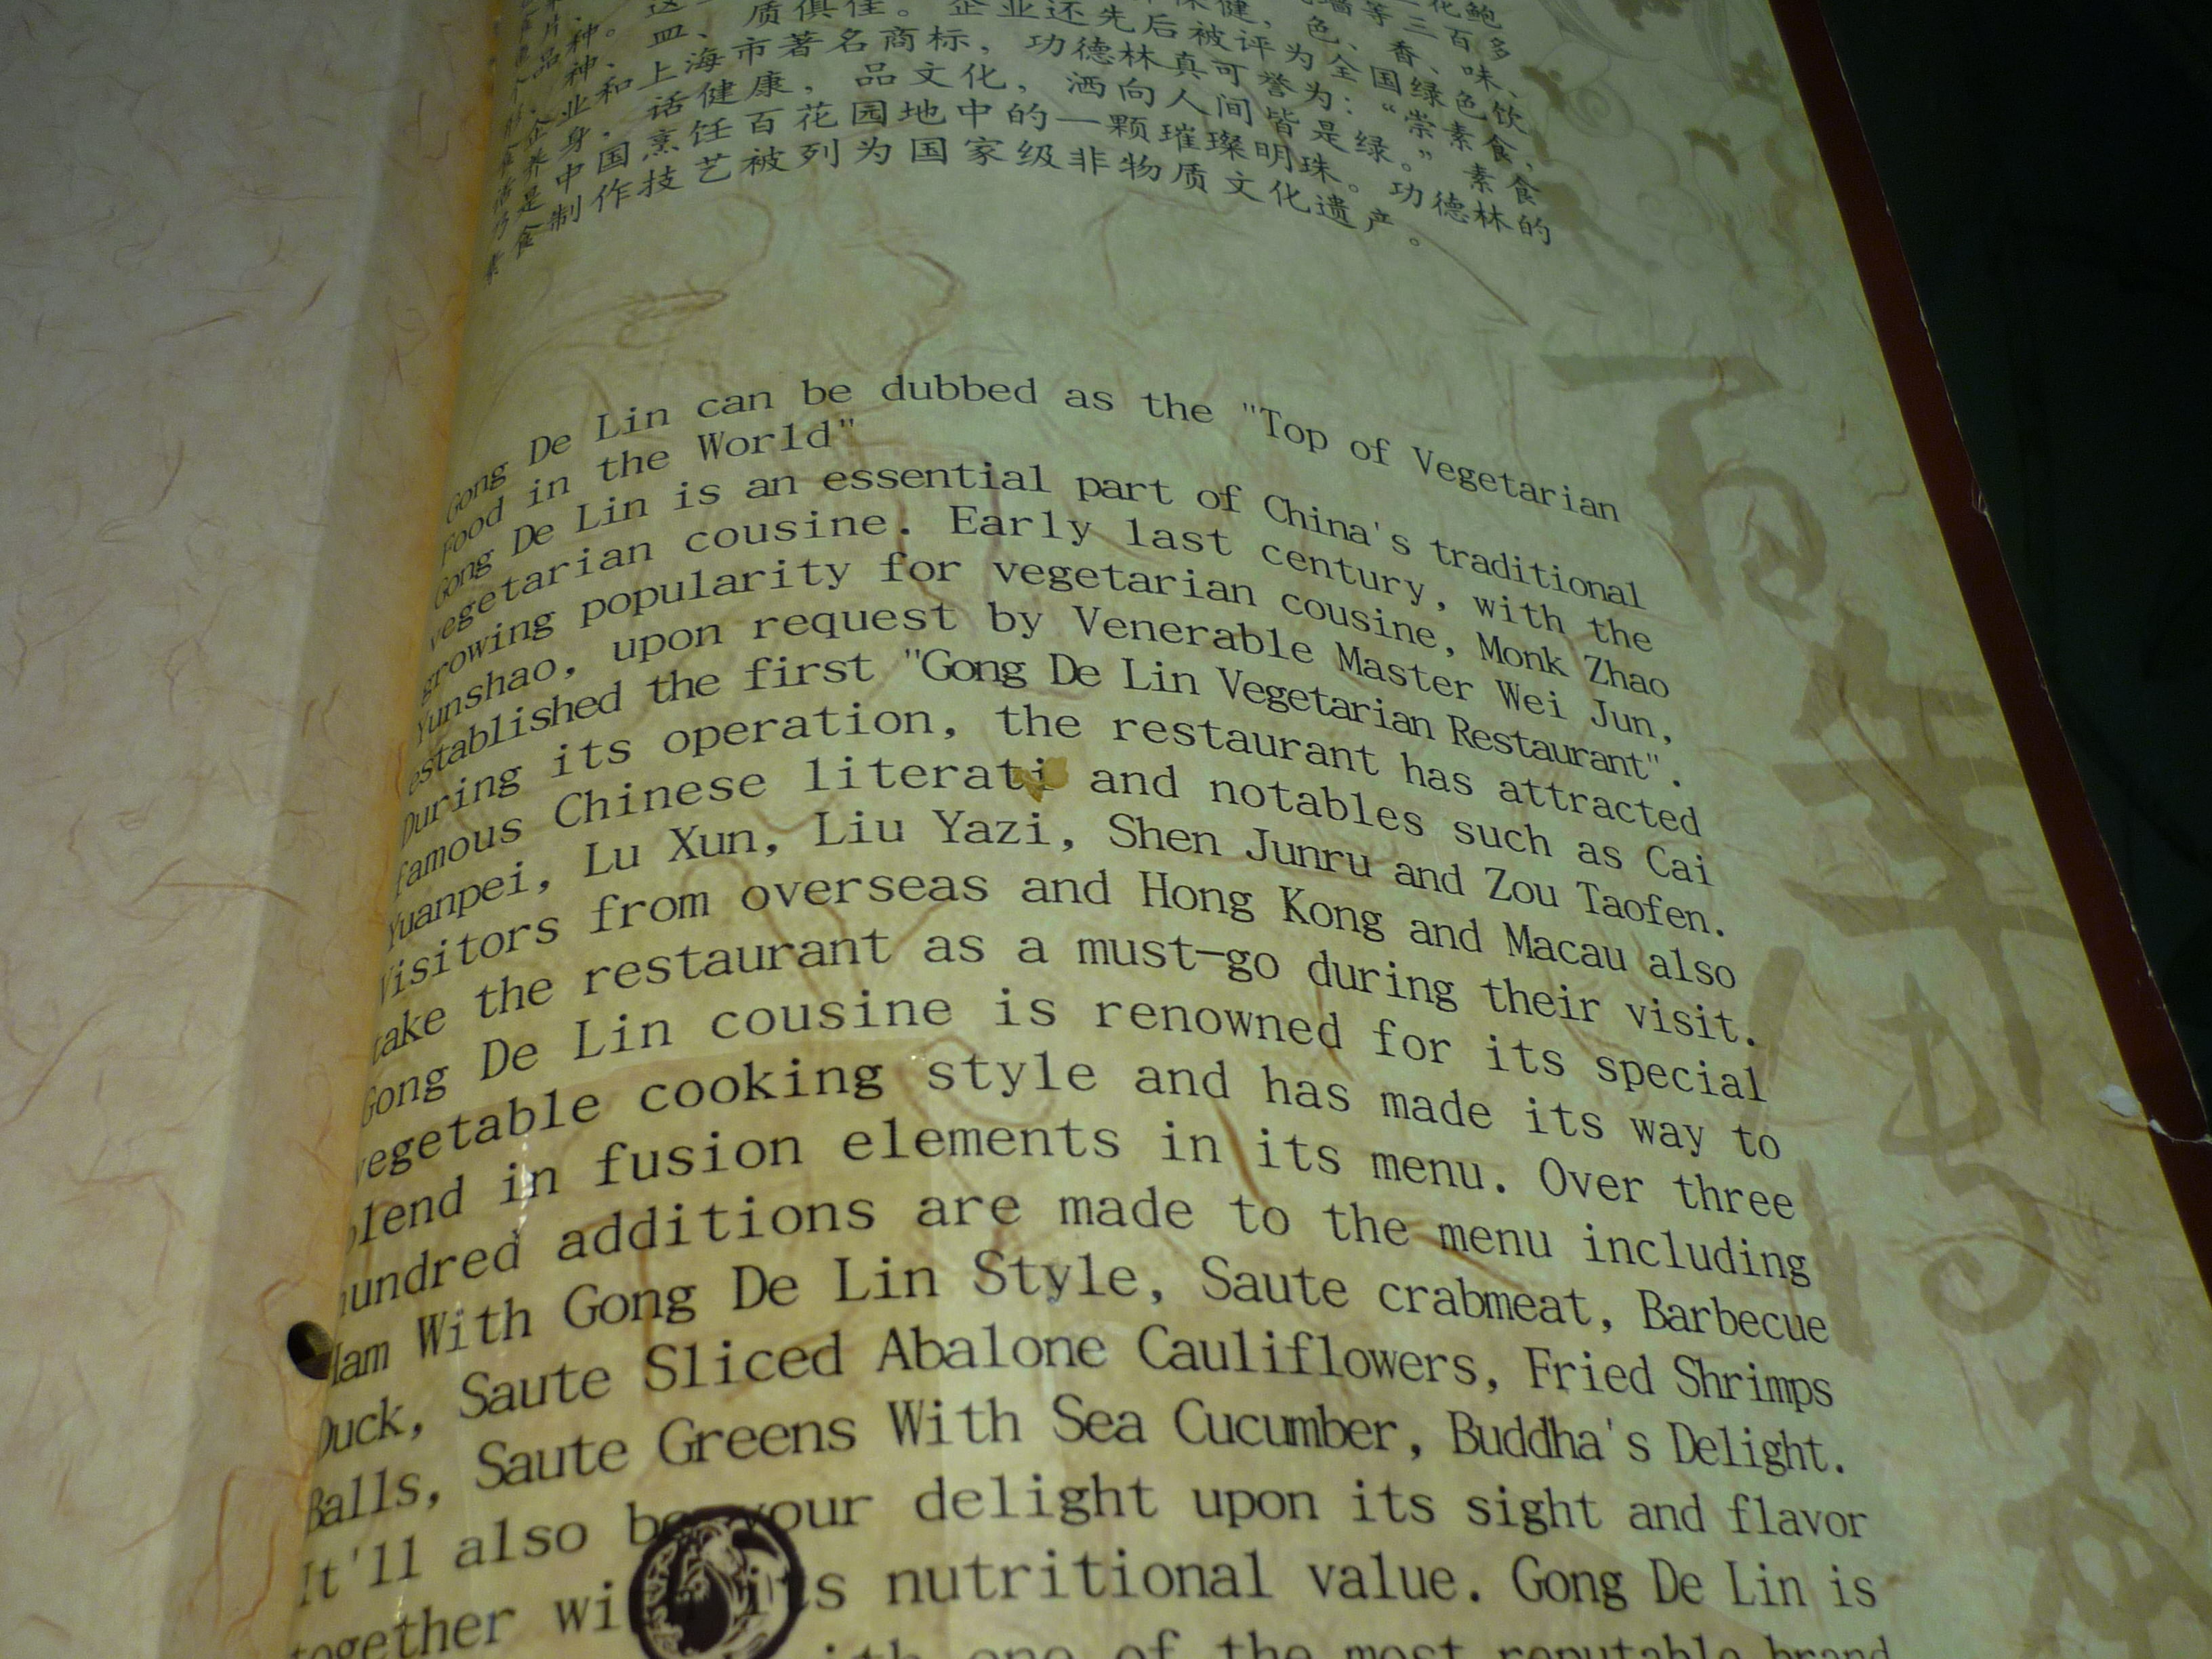 质俱佳。企业还先后被评为全国绿色饮
企业和上海市著名商标，功德林真可誉为：“崇素食，
养身，话健康，品文化，洒向人间皆是绿。”素食
是中国烹饪百花园地中的一颗璀璨明珠。功德林的
素食制作技艺被列为国家级非物质文化遗产。
Gong De Lin can be dubbed as the "Top of Vegetarian
Food in the World"
Gong De Lin is an essential part of China's traditional
vegetarian cousine. Early last century, with the
growing popularity for vegetarian cousine, Monk Zhao
Yunshao, upon request by Venerable Master Wei Jun,
established the first "Gong De Lin Vegetarian Restaurant".
During its operation, the restaurant has attracted
famous Chinese literati and notables such as Cai
Yuanpei, Lu Xun, Liu Yazi, Shen Junru and Zou Taofen.
Visitors from overseas and Hong Kong and Macau also
take the restaurant as a must-go during their visit.
Gong De Lin cousine is renowned for its special
vegetable cooking style and has made its way to
blend in fusion elements in its menu. Over three
hundred additions are made to the menu including
Ham With Gong De Lin Style, Saute crabmeat, Barbecue
Duck, Saute Sliced Abalone Cauliflowers, Fried Shrimps
Balls, Saute Greens With Sea Cucumber, Buddha's Delight.
It'll also be your delight upon its sight and flavor
together with its nutritional value. Gong De Lin is
with one of the most reputable brand